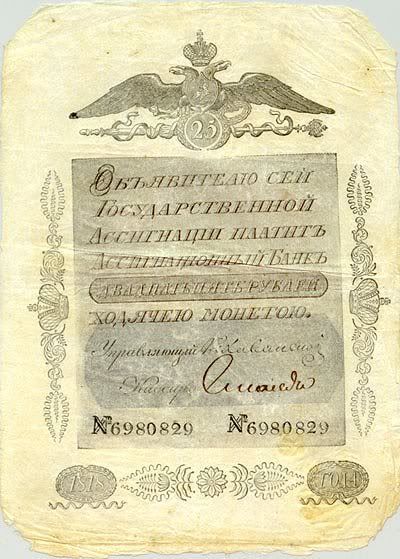 25
Объявителю сей
Государственной
Ассигнаціи платитъ
Ассигнаціонный Банкъ
двадцать пять рублей
ходячею монетою.
Управляющій
Кассиръ
№6980829 №6980829
1818 года